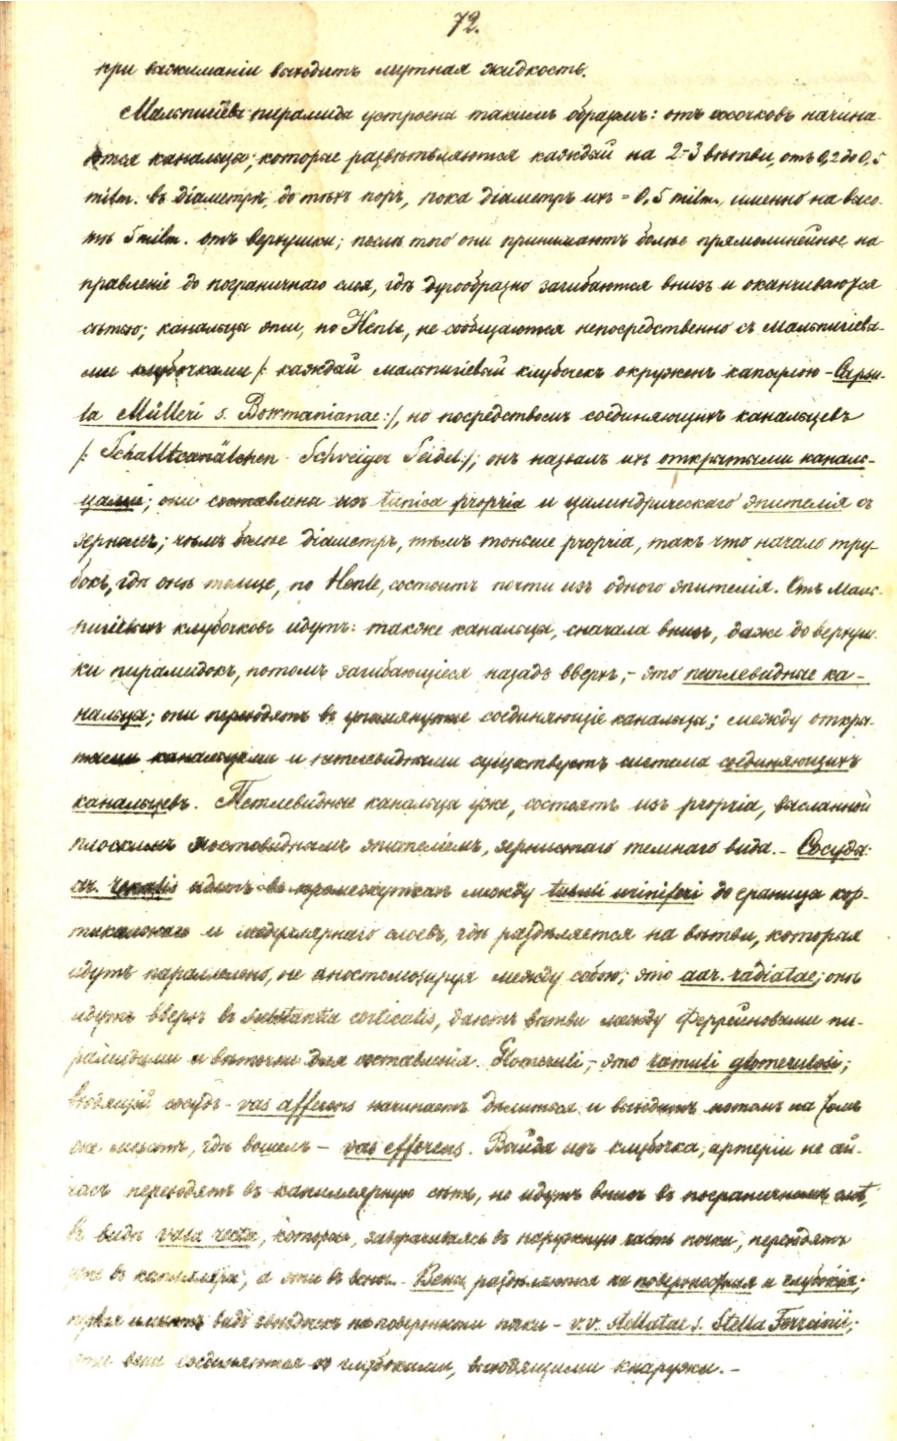 72.
при выжиманіи выходитъ мутная жидкость.
Мальпигіева пирамида устроена такимъ образомъ: отъ сосочковъ начина-
ются канальцы; которые развѣтвляются каждый на 2-3 вѣтви, отъ 0,2 до 0,5
milm. въ діаметрѣ, до тѣхъ поръ, пока діаметръ ихъ = 0,5 milm., именно на высо-
тѣ 5 milm. отъ верхушки; послѣ того они принимаютъ болѣе прямолинейное на-
правленіе до пограничнаго слоя, гдѣ дугообразно загибаются внизъ и оканчиваются
сѣтью; канальцы эти, по Henle, не сообщаются непосредственно съ Мальпигіевы-
ми клубочками /: каждый мальпигіевый клубочекъ окруженъ капсулою - Capsu-
la Mülleri s. Bowmanianae :/, но посредствомъ соединяющихъ канальцевъ
/: Schaltcanälchen Schweiger Seidel :/; онъ назвалъ ихъ открытыми каналь-
цами; они составлены изъ tunica propria и цилиндрическаго эпителія съ
зернами; чѣмъ болѣе діаметръ, тѣмъ тоньше propria, такъ что начало тру-
бокъ, гдѣ онѣ толще, по Henle, состоитъ почти изъ одного эпителія. Отъ Маль-
пигіевыхъ клубочковъ идутъ также канальцы, сначала внизъ, даже до верхуш-
ки пирамидокъ, потомъ загибающіеся назадъ вверхъ, - это петлевидные ка-
нальцы; они переходятъ въ упомянутые соединяющіе канальцы; между откры-
тыми канальцами и петлевидными существуетъ система соединяющихъ
канальцевъ. Петлевидные канальцы уже, состоятъ изъ propria, высланной
плоскимъ мостовиднымъ эпителіемъ, зернистаго темнаго вида. - Сосуды:
ar. renalis идетъ въ промежуткахъ между tubuli uriniferi до границы кор-
тикальнаго и медуллярнаго слоевъ, гдѣ раздѣляется на вѣтви, которыя
идутъ параллельно, не анастомозируя между собою; это aar. radiatae; онѣ
идутъ вверхъ въ substantia corticalis, даютъ вѣтви между Феррейновыми пи-
рамидами и вѣточки для составленія Glomeruli, - это ramuli glomerulosi;
входящій сосудъ - vas afferens начинаетъ дѣлиться и выходитъ потомъ на томъ
же мѣстѣ, гдѣ вошелъ - vas efferens. Выйдя изъ клубочка, артеріи не сей-
часъ переходятъ въ капиллярную сѣть, но идутъ внизъ въ пограничномъ слоѣ,
въ видѣ vasa recta, которые, заворачиваясь въ наружную часть почки, переходятъ
въ капилляры, а эти въ вены. - Вены раздѣляются на поверхностныя и глубокія;
первыя имѣютъ видъ звѣздочекъ на поверхности почки - v.v. stellatae s. Stella Ferreinii;
эти вены соединяются съ глубокими, выходящими кнаружи. -